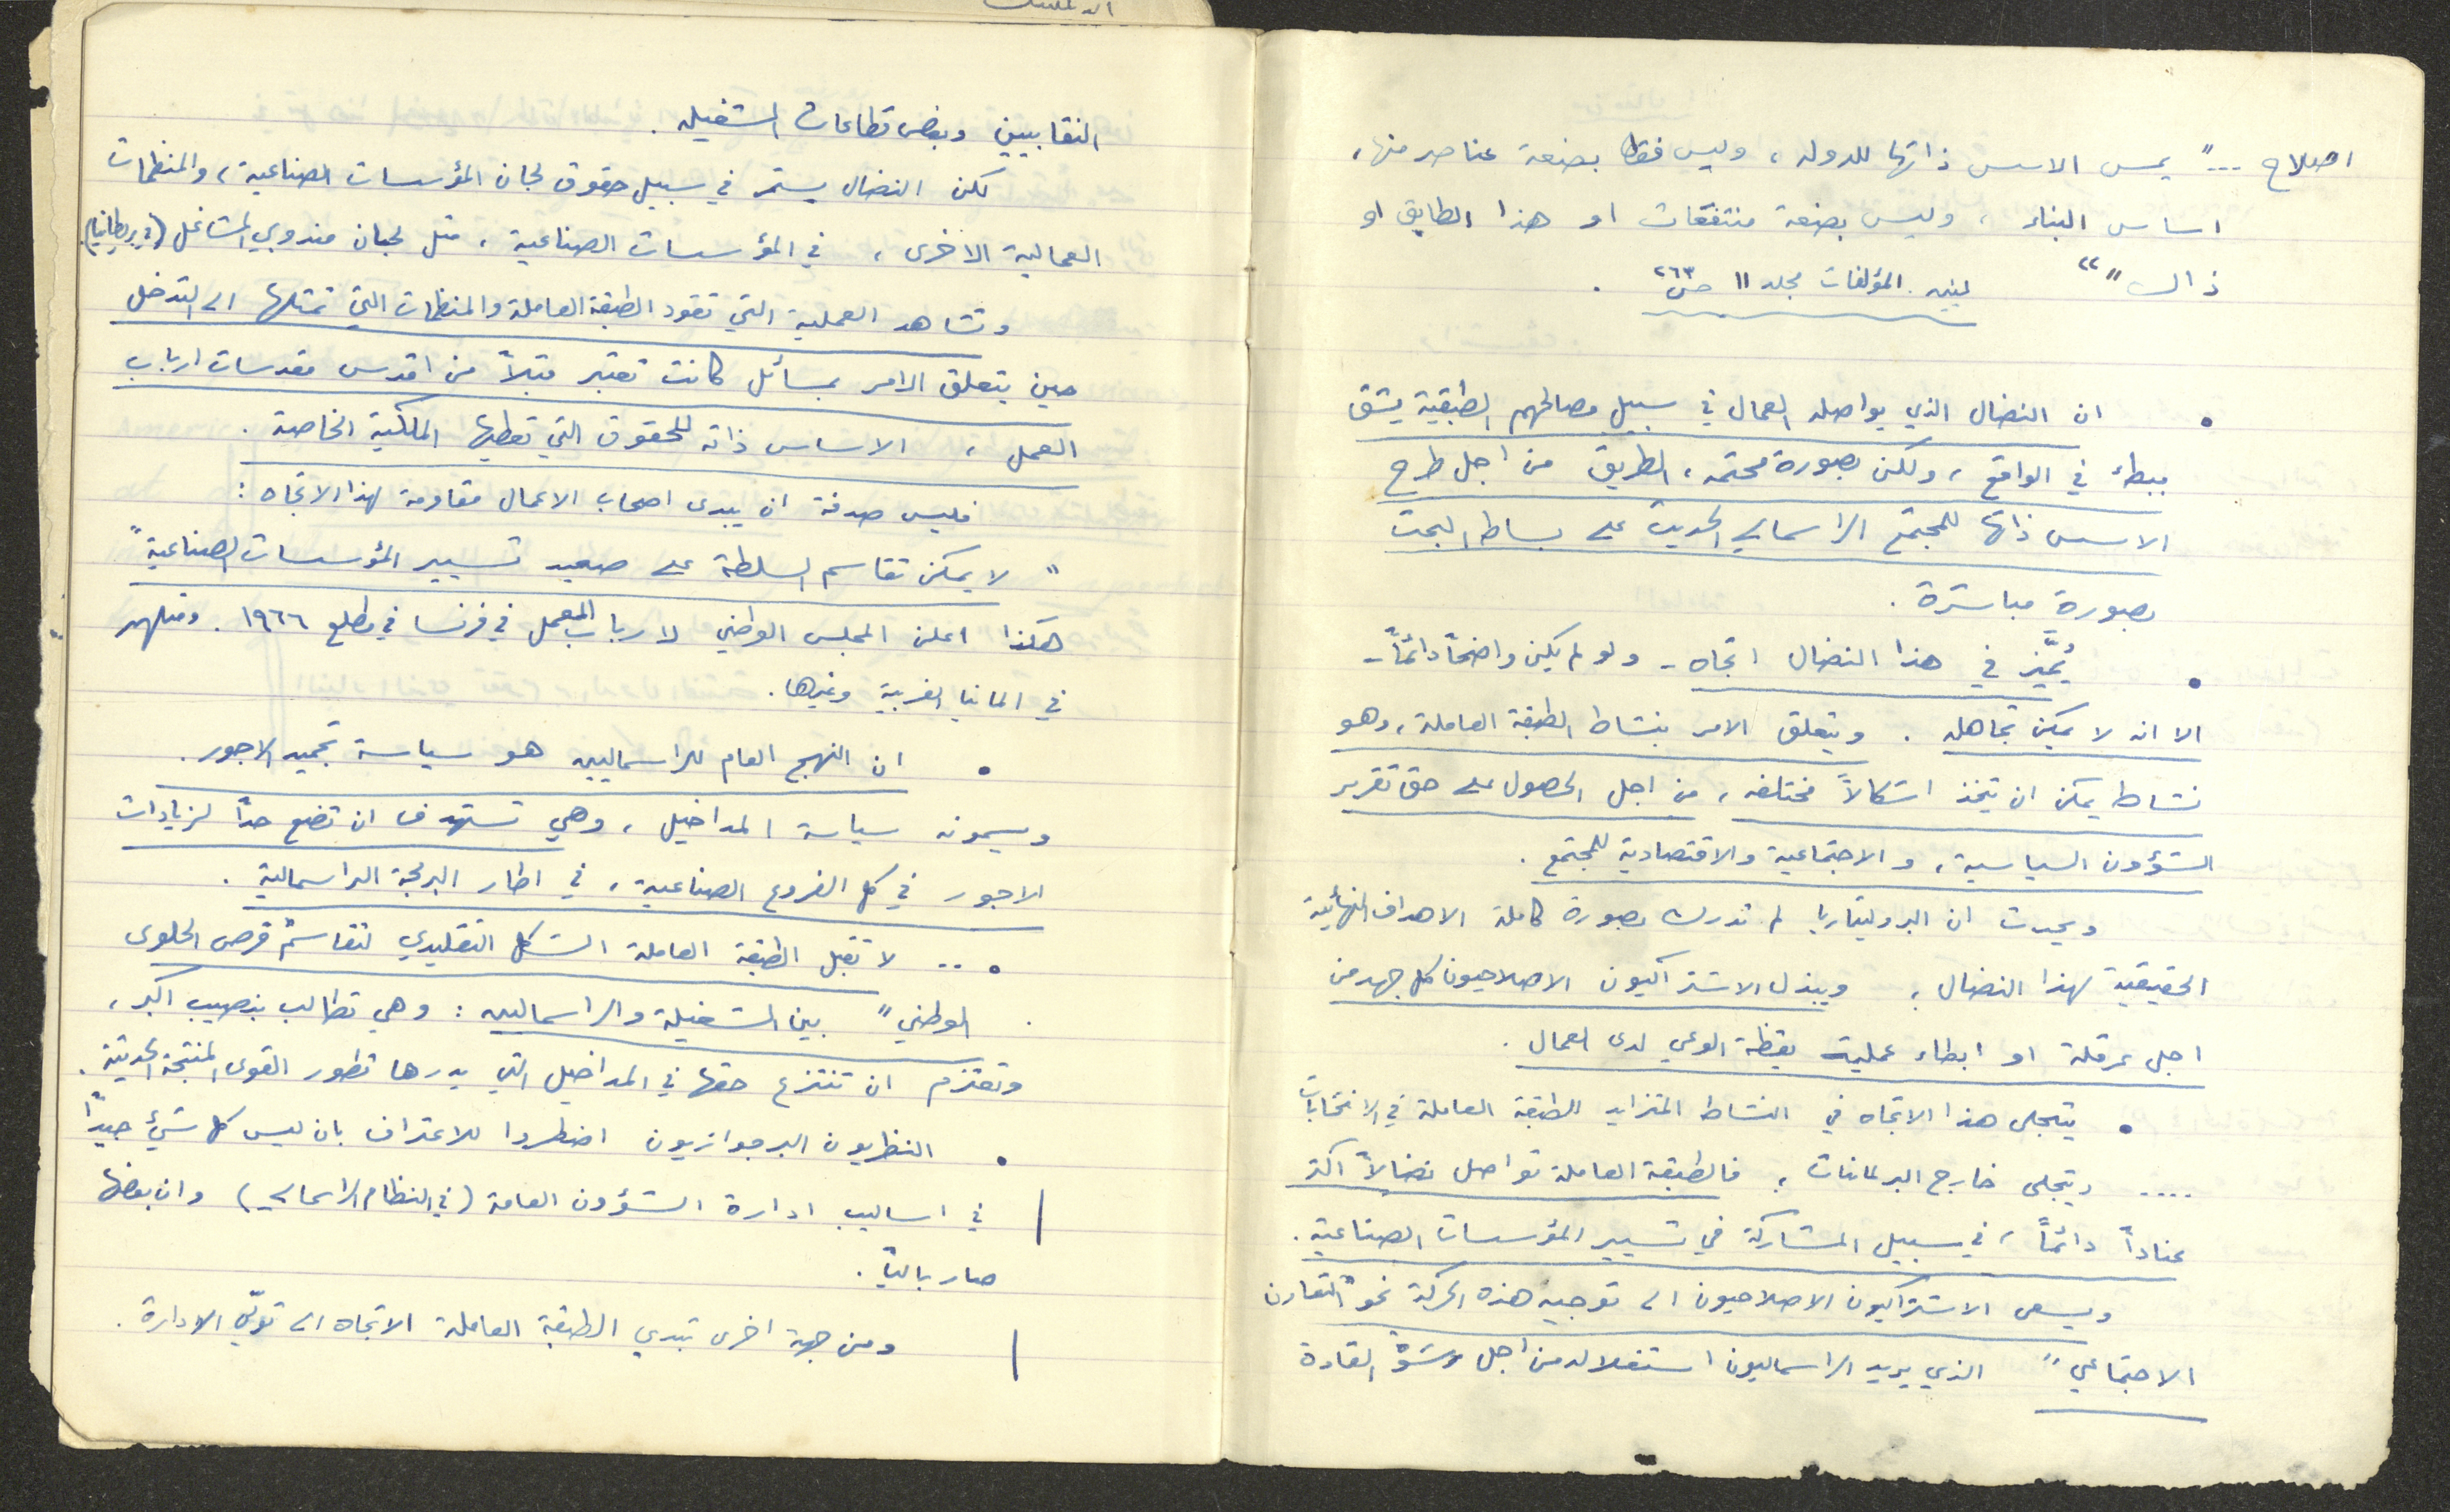 اصلاح ..." يمس الاسس ذاتها للدولة، وليس فقط بصنعة عناصر منها،
اساس البناء، وليس بصنعة منتفقات او هذا الطابق او
ذاك "" لينين. المؤلفات مجلد ١١ ص ٢٦٣ .
• ان النضال الذي يواصله العمال في سبيل مصالحهم الطبقية يشق
ببطء في الواقع، ولكن بصورة محتمه، الطريق من اجل طرح
الاسس ذاتها للمجتمع الراسمالي الحديث على بساط البحث
بصورة مباشرة .
• يُميَّز في هذا النضال اتجاه - ولو لم يكن واضحاً دائماً -
الا انه لا يمكن تجاهله . ويتعلق الامر بنشاط الطبقة العاملة، وهو
نشاط يمكن ان يتخذ اشكالاً مختلفه، من اجل الحصول على حق تقرير
الشؤون السياسية، والاجتماعية والاقتصادية للمجتمع .
ويحدث ان البروليتاريا لم تدرك بصورة كاملة الاهداف النهائية
الحقيقية لهذا النضال، ويبذل الاشتراكيون الاصلاحيون كل جهد من
اجل عرقلة او ابطاء عملية يقظة الوعي لدى العمال .
• يتجلى هذا الاتجاه في النشاط المتزايد للطبقة العاملة في الانتخابات
.... ويتجلى خارج البرلمانات، فالطبقة العاملة تواصل نضالاً اكثر
عناداً دائماً، في سبيل المشاركة في تسيير المؤسسات الصناعية .
ويسعى الاشتراكيون الاصلاحيون الى توجيه هذه الحركة نحو "التعاون
الاجتماعي" الذي يريد الراسماليون استغلاله من اجل رشوة القادة
النقابيين وبعض قطاعات الشغيله .
لكن النضال يستمر في سبيل حقوق لجان المؤسسات الصناعية، والمنظمات
العمالية الاخرى، في المؤسسات الصناعية، مثل لجان مندوبي المشاغل (في بريطانيا).
وتشاهد العملية التي تقود الطبقة العاملة والمنظمات التي تمثلها الى التدخل
حين يتعلق الامر بمسائل كانت تعتبر قبلاً من اقدس مقدسات ارباب
العمل، الاساس ذاته للحقوق التي تعطيها الملكية الخاصة .
فليس صدفة ان يبدى اصحاب الاعمال مقاومة لهذا الاتجاه :
" لا يمكن تقاسم السلطة على صعيد تسيير المؤسسات الصناعية"
هكذا اعلن المجلس الوطني لارباب العمل في فرنسا في مطلع ١٩٦٦ . ومثلهم
في المانيا الغربية وغيرها .
• ان النهج العام للراسماليين هو سياسة تجميد الاجور .
ويسمونه سياسة المداخيل، وهي تستهدف ان تضع حداً لزيادات
الاجور في كل الفروع الصناعية، في اطار البرمجة الراسمالية .
• .. لا تقبل الطبقة العاملة الشكل التقليدي لتقاسم "قرص الحلوى
الوطني" بين الشغيلة والراسماليين : وهي تطالب بنصيب اكبر،
وتعتزم ان تنتزع حقها في المداخيل التي يدرها تطور القوى المنتجة الحديثة .
• النظريون البرجوازيون اضطروا للاعتراف بان ليس كل شيئ جيداً
في اساليب ادارة الشؤون العامة (في النظام الراسمالي) وان بعضها
صار بالياً .
ومن جهة اخرى تبدي الطبقة العاملة الاتجاه الى تولّي الادارة .